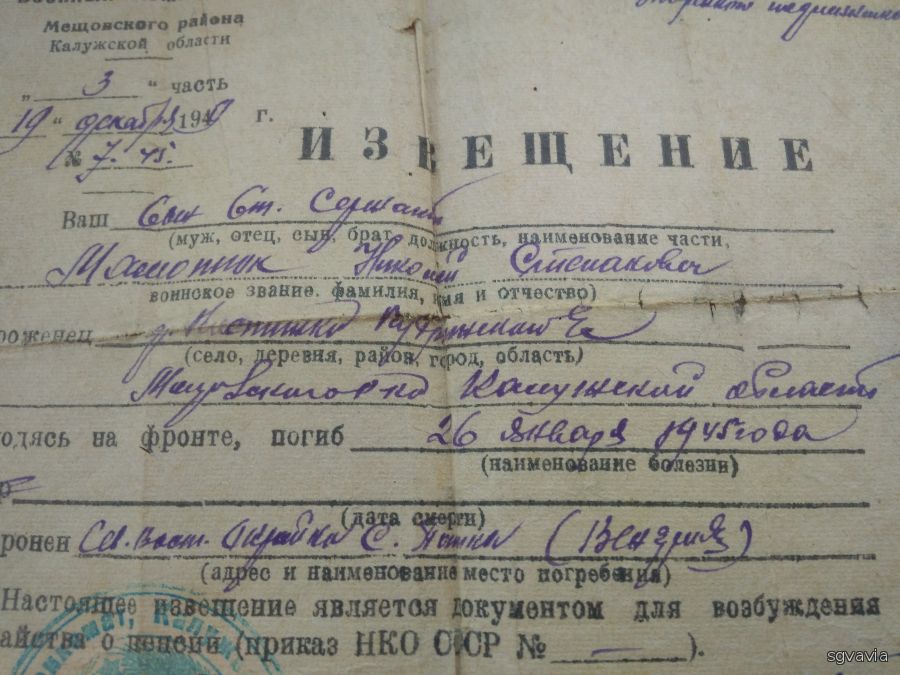 Мещовского района
Калужской области
„ 3 “ часть
19 “ декабря 194 г.
№ 7.45.
ИЗВЕЩЕНИЕ
Ваш Сын Ст. Сержант
(муж, отец, сын, брат, должность, наименование части,
Николай Степанович
воинское звание, фамилия, имя и отчество)
роженец д.
(село, деревня, район, город, область)
Мещовского р-на Калужской области
одясь на фронте, погиб 26 января 1945 года
(наименование болезни)
р
(дата смерти)
ронен Св. вост. Окрайна С. (Венгрия)
(адрес и наименование место погребения)
Настоящее извещение является документом для возбуждения
айства о пенсии (приказ НКО СССР № — ).
sgvavia